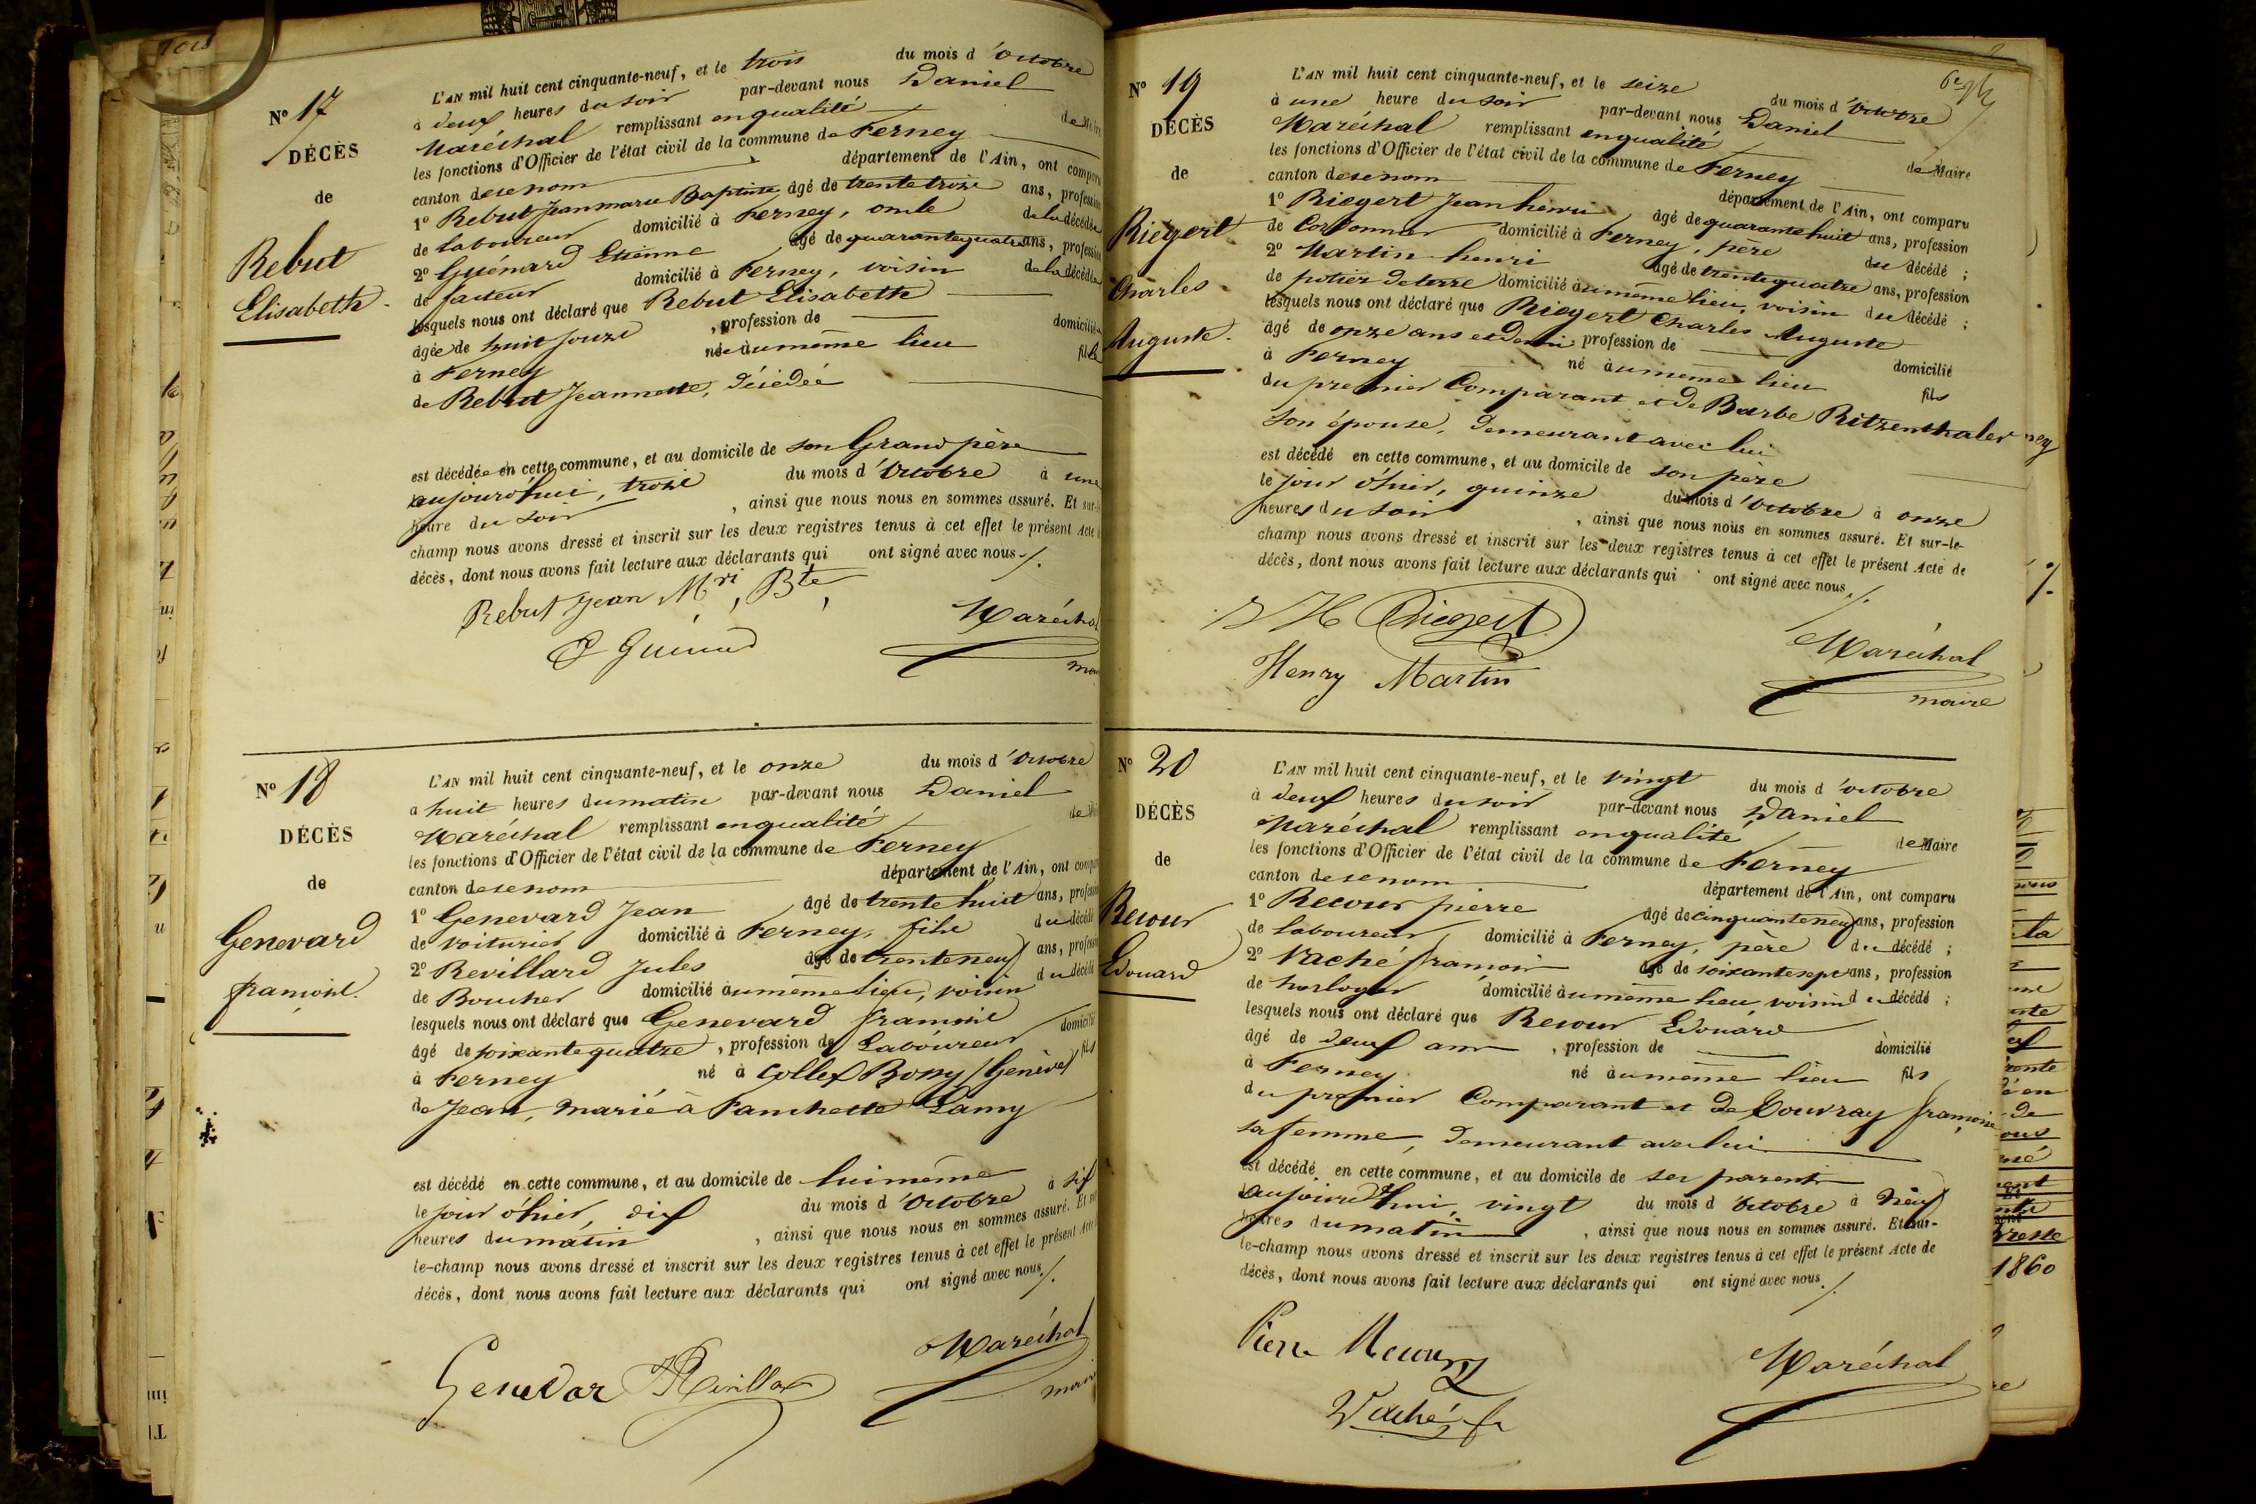 Nº 17
DÉCÈS
de
Rebut
Elisabeth.
L'AN mil huit cent cinquante-neuf, et le trois du mois d'Octobre
à deux heures du soir par-devant nous Daniel
Maréchal remplissant en qualité de Maire
les fonctions d'Officier de l'état civil de la commune de Ferney
canton de ce nom département de l'Ain, ont comparu
1º Rebut Jean marie Baptiste âgé de trente trois ans, profession
de laboureur domicilié à Ferney, oncle de la décédée
2º Guénard Etienne âgé de quarante quatre ans, profession
de facteur domicilié à Ferney, voisin de la décédée
lesquels nous ont déclaré que Rebut Elisabeth
âgée de huit jours, profession de domiciliée
à Ferney née au même lieu fille
de Rebut Jeannette, décédée
est décédée en cette commune, et au domicile de son Grand père
aujourd'hui, trois du mois d'Octobre à une
heure du soir, ainsi que nous nous en sommes assuré. Et sur-le-
champ nous avons dressé et inscrit sur les deux registres tenus à cet effet le présent Acte de
décès, dont nous avons fait lecture aux déclarants qui ont signé avec nous./.
Rebut Jean Mri, Bte,
Maréchal
Nº 18
DÉCÈS
de
Genevard
françois.
L'AN mil huit cent cinquante-neuf, et le onze du mois d'Octobre
à huit heures du matin par-devant nous Daniel
Maréchal remplissant en qualité de Maire
les fonctions d'Officier de l'état civil de la commune de Ferney
canton de ce nom département de l'Ain, ont comparu
1º Genevard Jean âgé de trente huit ans, profession
de voiturier domicilié à Ferney, fils du décédé
2º Revillard Jules âgé de trente neuf ans, profession
de Boucher domicilié au même lieu, voisin du décédé
lesquels nous ont déclaré que Genevard françois
âgé de soixante quatre, profession de Laboureur domicilié
à Ferney né à Collex Bossy (Genève) fils
de Jean, marié à Fanchette Lamy
est décédé en cette commune, et au domicile de lui même
le jour d'hier, dix du mois d'Octobre à six
heures du matin, ainsi que nous nous en sommes assuré. Et sur-
le-champ nous avons dressé et inscrit sur les deux registres tenus à cet effet le présent Acte de
décès, dont nous avons fait lecture aux déclarants qui ont signé avec nous./.
Genevar JRevillard
Maréchal
maire
Nº 19
DÉCÈS
de
Riegert
Charles
Auguste.
L'AN mil huit cent cinquante-neuf, et le seize du mois d'Octobre
à une heure du soir par-devant nous Daniel
Maréchal remplissant en qualité de Maire
les fonctions d'Officier de l'état civil de la commune de Ferney
canton de ce nom département de l'Ain, ont comparu
1º Riegert Jean henri âgé de quarante huit ans, profession
de Cordonnier domicilié à Ferney, père du décédé ;
2º Martin henri âgé de trente quatre ans, profession
de potier de terre domicilié au même lieu, voisin du décédé ;
lesquels nous ont déclaré que Riegert Charles Auguste
âgé de onze ans et demi, profession de domicilié
à Ferney né au même lieu fils
du premier Comparant et de Barbe Ritzenthaler
son épouse, demeurant avec lui
est décédé en cette commune, et au domicile de son père
le jour d'hier, quinze du mois d'Octobre à onze
heures du soir, ainsi que nous nous en sommes assuré. Et sur-le-
champ nous avons dressé et inscrit sur les deux registres tenus à cet effet le présent Acte de
décès, dont nous avons fait lecture aux déclarants qui ont signé avec nous./.
J H Riegert
Henry Martin
Maréchal
maire
Nº 20
DÉCÈS
de
Recour
Edouard
L'AN mil huit cent cinquante-neuf, et le vingt du mois d'Octobre
à deux heures du soir par-devant nous Daniel
Maréchal remplissant en qualité de Maire
les fonctions d'Officier de l'état civil de la commune de Ferney
canton de ce nom département de l'Ain, ont comparu
1º Recour pierre âgé de cinquante neuf ans, profession
de laboureur domicilié à Ferney, père du décédé ;
2º Vaché françois âgé de soixante sept ans, profession
de horloger domicilié au même lieu, voisin du décédé ;
lesquels nous ont déclaré que Recour Edouard
âgé de deux ans, profession de domicilié
à Ferney né au même lieu fils
du premier Comparant et de Couvray françoise
sa femme, demeurant avec lui
est décédé en cette commune, et au domicile de ses parents
aujourd'hui, vingt du mois d'Octobre à neuf
heures du matin, ainsi que nous nous en sommes assuré. Et sur-
le-champ nous avons dressé et inscrit sur les deux registres tenus à cet effet le présent Acte de
décès, dont nous avons fait lecture aux déclarants qui ont signé avec nous./.
Pierre Recour
Vaché fr
Maréchal
1860